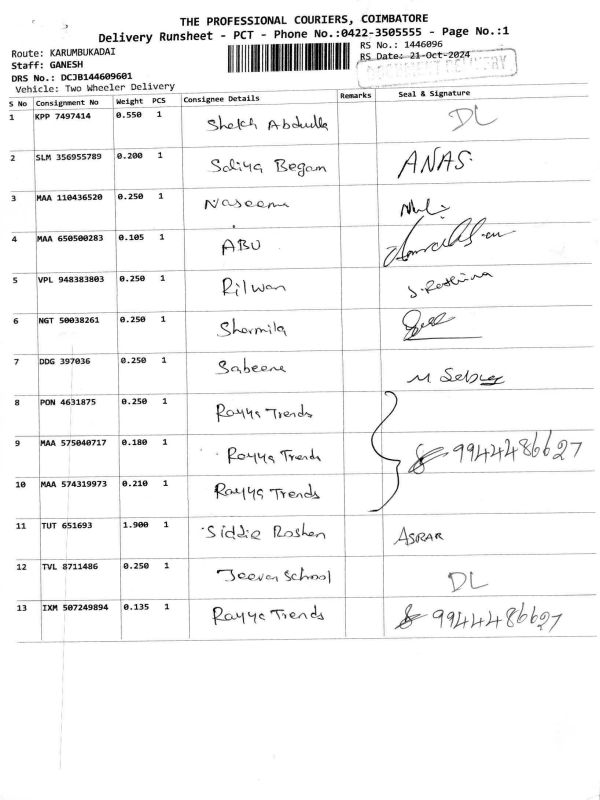 THE PROFESSIONAL COURIERS, COIMBATORE
Delivery Runsheet - PCT - Phone No.:0422-3505555 - Page No.:1
Route: KARUMBUKADAI
RS No.: 1446096
Staff: GANESH
RS Date: 21-Oct-2024
DRS No.: DCJB144609601
Vehicle: Two Wheeler Delivery
S No Consignment No Weight PCS Consignee Details Remarks Seal & Signature
1 KPP 7497414 0.550 1 Shekh Abdulla DL
2 SLM 356955789 0.200 1 Saliya Begam ANAS
3 MAA 110436520 0.250 1 Naseema
4 MAA 650500283 0.105 1 ABU
5 VPL 948383803 0.250 1 Rilwan
6 NGT 50038261 0.250 1 Sharmila
7 DDG 397036 0.250 1 Sabeena
8 PON 4631875 0.250 1 Rayya Trends
9 MAA 575040717 0.180 1 Rayya Trends 9944486627
10 MAA 574319973 0.210 1 Rayya Trends
11 TUT 651693 1.900 1 Siddie Roshan ASRAR
12 TVL 8711486 0.250 1 Jeeva School DL
13 IXM 507249894 0.135 1 Rayya Trends 9944486627